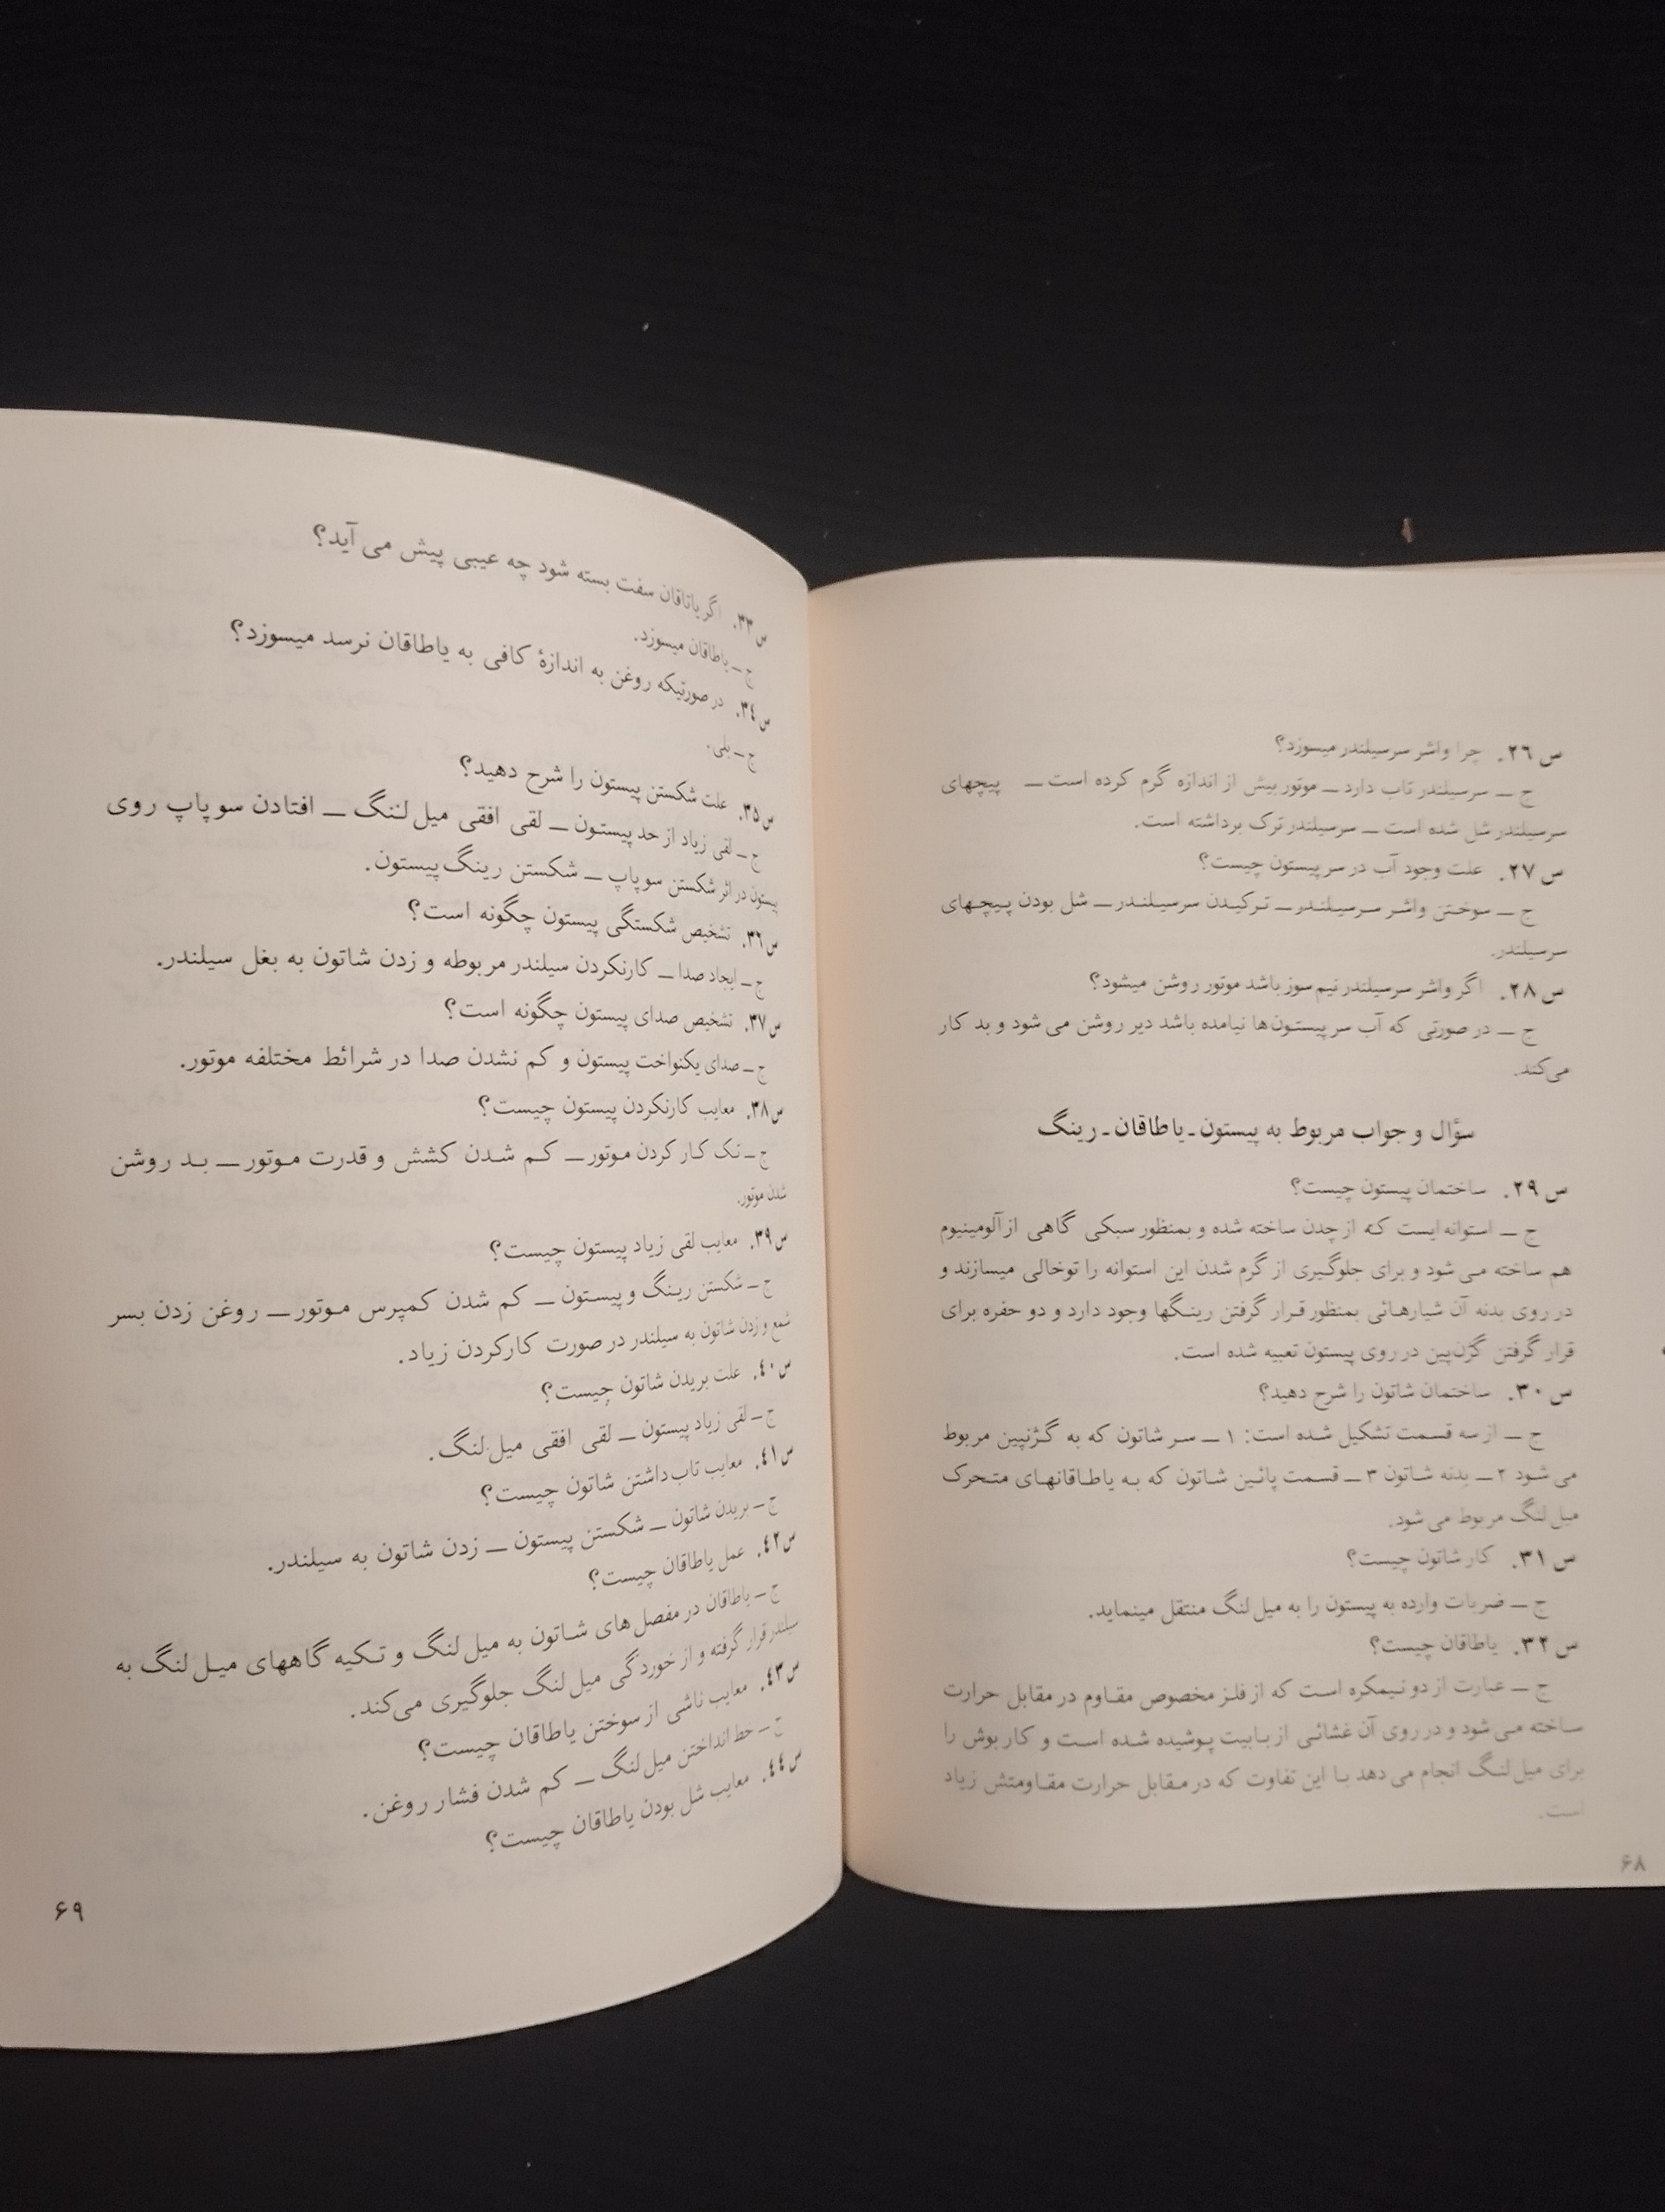 س۲۶. چرا واشر سرسیلندر میسوزد؟
ج ــ سرسیلندر تاب دارد ــ موتور بیش از اندازه گرم کرده است ــ پیچهای
سرسیلندر شل شده است ــ سرسیلندر ترک برداشته است.
س۲۷. علت وجود آب در سر پیستون چیست؟
ج ــ سوختن واشر سرسیلندر ــ ترکیدن سرسیلندر ــ شل بودن پیچهای
سرسیلندر.
س۲۸. اگر واشر سرسیلندر نیم سوز باشد موتور روشن میشود؟
ج ــ در صورتی که آب سر پیستون‌ها نیامده باشد دیر روشن می شود و بد کار
می‌کند.
سؤال و جواب مربوط به پیستون ـ یاطاقان ـ رینگ
س۲۹. ساختمان پیستون چیست؟
ج ــ استوانه ایست که از چدن ساخته شده و بمنظور سبکی گاهی از آلومینیوم
هم ساخته می شود و برای جلوگیری از گرم شدن این استوانه را توخالی میسازند و
در روی بدنه آن شیارهائی بمنظور قرار گرفتن رینگها وجود دارد و دو حفره برای
قرار گرفتن گژن‌پین در روی پیستون تعبیه شده است.
س۳۰. ساختمان شاتون را شرح دهید؟
ج ــ از سه قسمت تشکیل شده است: ۱ ــ سر شاتون که به گژنپین مربوط
می شود ۲ ــ بدنه شاتون ۳ ــ قسمت پائین شاتون که به یاطاقانهای متحرک
میل لنگ مربوط می شود.
س۳۱. کار شاتون چیست؟
ج ــ ضربات وارده به پیستون را به میل لنگ منتقل مینماید.
س۳۲. یاطاقان چیست؟
ج ــ عبارت از دو نیمکره است که از فلز مخصوص مقاوم در مقابل حرارت
ساخته می شود و در روی آن غشائی از بابیت پوشیده شده است و کار بوش را
برای میل لنگ انجام می دهد با این تفاوت که در مقابل حرارت مقاومتش زیاد
است.
۶۸
س۳۳. اگر یاتاقان سفت بسته شود چه عیبی پیش می آید؟
ج ــ یاطاقان میسوزد.
س۳٤. در صورتیکه روغن به اندازهٔ کافی به یاطاقان نرسد میسوزد؟
ج ــ بلی.
س۳۵. علت شکستن پیستون را شرح دهید؟
ج ــ لقی زیاد از حد پیستون ــ لقی افقی میل لنگ ــ افتادن سوپاپ روی
پیستون در اثر شکستن سوپاپ ــ شکستن رینگ پیستون.
س۳۶. تشخیص شکستگی پیستون چگونه است؟
ج ــ ایجاد صدا ــ کارنکردن سیلندر مربوطه و زدن شاتون به بغل سیلندر.
س۳۷. تشخیص صدای پیستون چگونه است؟
ج ــ صدای یکنواخت پیستون و کم نشدن صدا در شرائط مختلفه موتور.
س۳۸. معایب کارنکردن پیستون چیست؟
ج ــ تک کار کردن موتور ــ کم شدن کشش و قدرت موتور ــ بد روشن
شدن موتور.
س۳۹. معایب لقی زیاد پیستون چیست؟
ج ــ شکستن رینگ و پیستون ــ کم شدن کمپرس موتور ــ روغن زدن بسر
شمع و زدن شاتون به سیلندر در صورت کارکردن زیاد.
س٤۰. علت بریدن شاتون چیست؟
ج ــ لقی زیاد پیستون ــ لقی افقی میل لنگ.
س٤۱. معایب تاب داشتن شاتون چیست؟
ج ــ بریدن شاتون ــ شکستن پیستون ــ زدن شاتون به سیلندر.
س٤۲. عمل یاطاقان چیست؟
ج ــ یاطاقان در مفصل های شاتون به میل لنگ و تکیه گاههای میل لنگ به
سیلندر قرار گرفته و از خوردگی میل لنگ جلوگیری می‌کند.
س٤۳. معایب ناشی از سوختن یاطاقان چیست؟
ج ــ خط انداختن میل لنگ ــ کم شدن فشار روغن.
س٤٤. معایب شل بودن یاطاقان چیست؟
۶۹